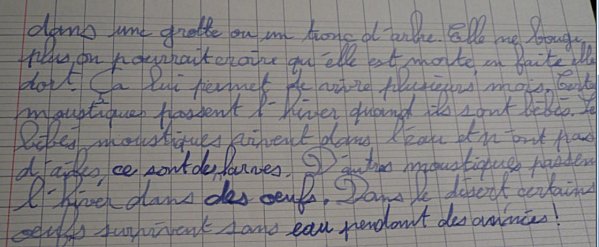 dans une grotte ou un tronc d'arbre. Elle ne bouge
plus, on pourrait croire qu'elle est morte en faite elle
dort. Ça lui permet de vivre plusieurs mois. Certe
moustiques passent l'hiver quand ils sont bébés. Le
bébés moustiques vivent dans l'eau et n'ont pas
d'ailes, ce sont des larves. D'autres moustiques passen
l'hiver dans des oeufs. Dans le desert certains
oeufs survivent sans eau pendant des années!